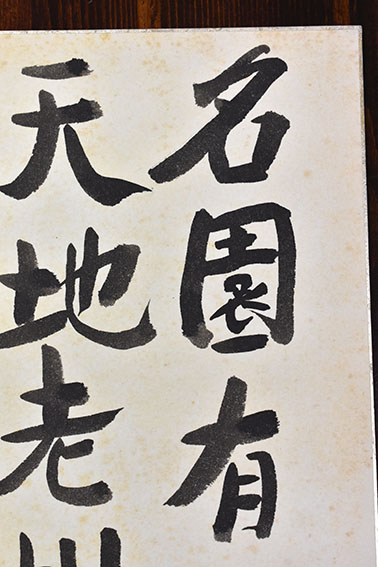 名園有
天地老